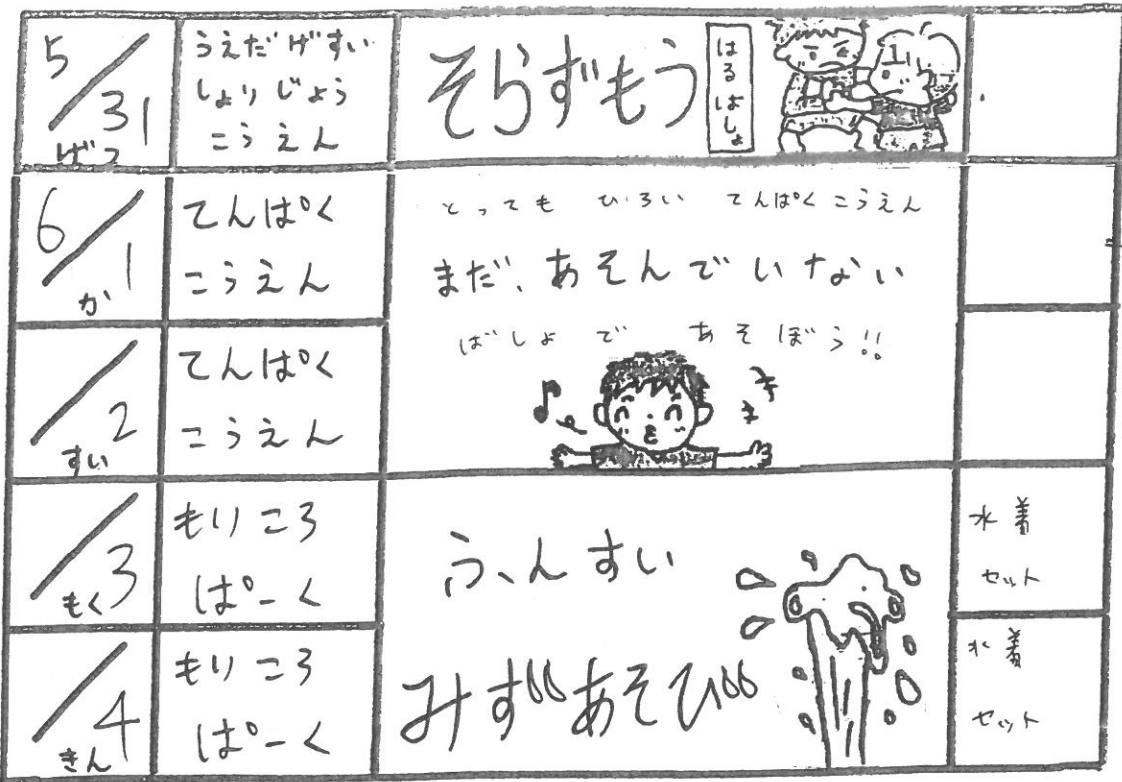 5/31
げつ
うえだげすい
しょりじょう
こうえん
そらずもう
はるばしょ
6/1
か
てんぱく
こうえん
とっても ひろい てんぱくこうえん
まだ、あそんでいない
ばしょで あそぼう!!
/2
すい
てんぱく
こうえん
キ
キ
/3
もく
もりころ
ぱーく
ふんすい
みずあそび
水着
セット
/4
きん
もりころ
ぱーく
水着
セット